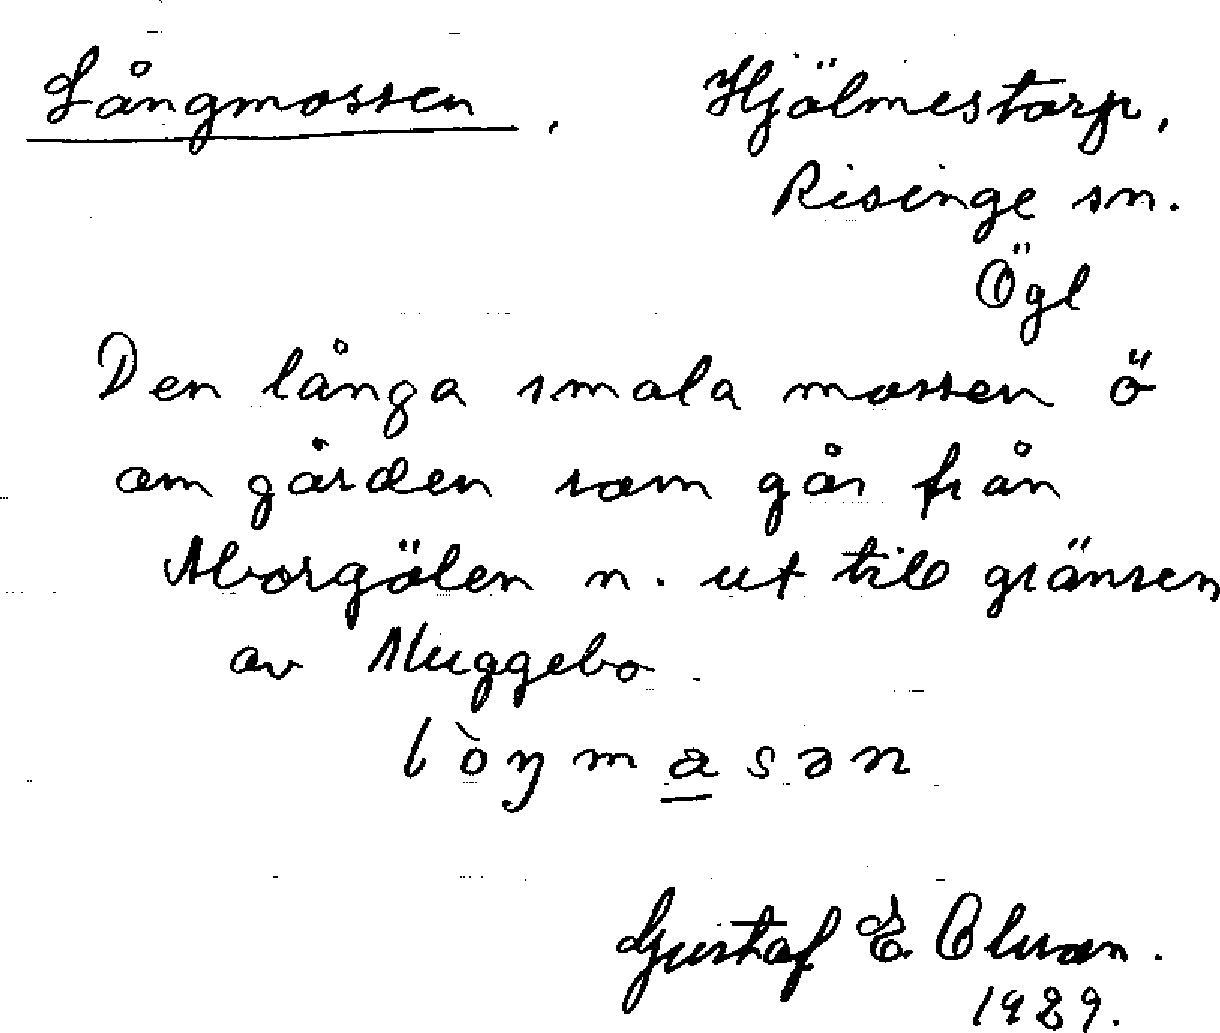 Långmossen, Hjälmestorp,
Risinge sn.
Ögl
Den långa smala mossen ö
om gården som går från
Aborgölen n. ut till gränsen
av Muggebo
lòŋmasən
Gustaf E. Olsson.
1929.